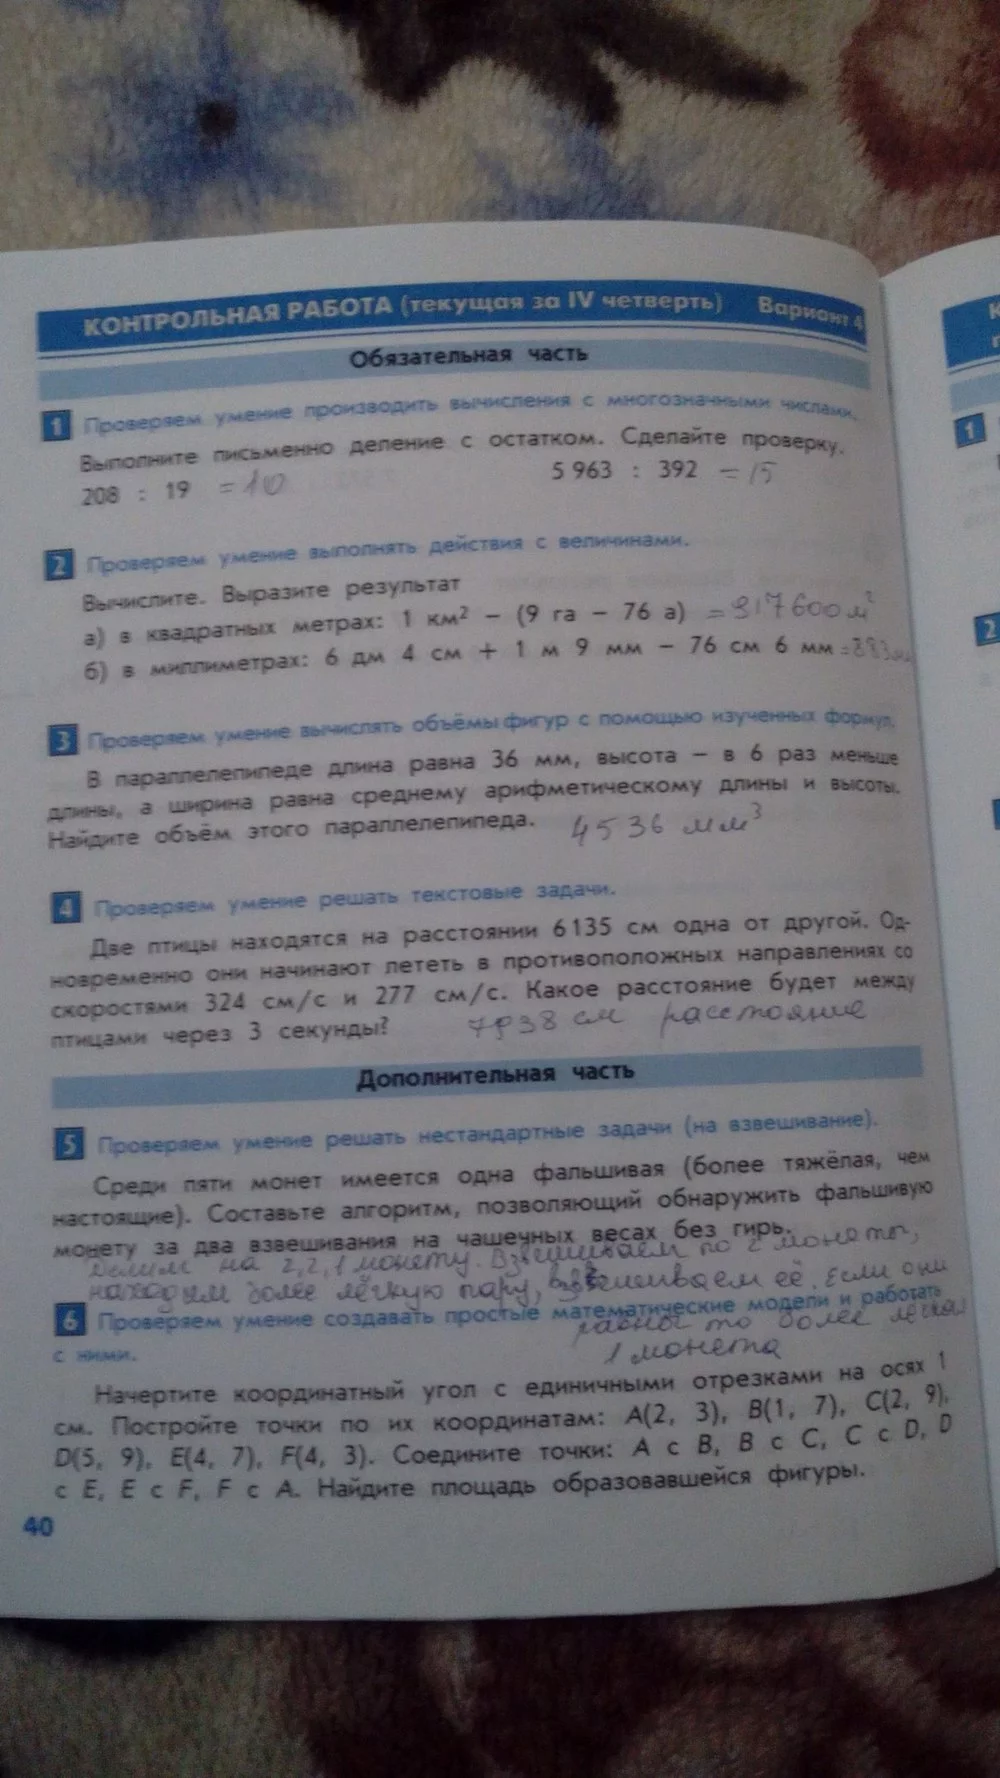 КОНТРОЛЬНАЯ РАБОТА (текущая за IV четверть) Вариант 4
Обязательная часть
1 Проверяем умение производить вычисления с многозначными числами.
Выполните письменно деление с остатком. Сделайте проверку.
208 : 19 =10 5 963 : 392 =15
2 Проверяем умение выполнять действия с величинами.
Вычислите. Выразите результат
а) в квадратных метрах: 1 км² – (9 га – 76 а) =917600м²
б) в миллиметрах: 6 дм 4 см + 1 м 9 мм – 76 см 6 мм
3 Проверяем умение вычислять объёмы фигур с помощью изученных формул.
В параллелепипеде длина равна 36 мм, высота – в 6 раз меньше
длины, а ширина равна среднему арифметическому длины и высоты.
Найдите объём этого параллелепипеда. 4536 мм³
4 Проверяем умение решать текстовые задачи.
Две птицы находятся на расстоянии 6 135 см одна от другой. Од-
новременно они начинают лететь в противоположных направлениях со
скоростями 324 см/с и 277 см/с. Какое расстояние будет между
птицами через 3 секунды? 7938 см расстояние
Дополнительная часть
5 Проверяем умение решать нестандартные задачи (на взвешивание).
Среди пяти монет имеется одна фальшивая (более тяжёлая, чем
настоящие). Составьте алгоритм, позволяющий обнаружить фальшивую
монету за два взвешивания на чашечных весах без гирь.
Делим на 2,2,1 монету. Взвешиваем по 2 монеты,
находим более лёгкую пару, взвешиваем её. Если они
6 Проверяем умение создавать простые математические модели и работать
равны то более лёгкая
с ними.
1 монета
Начертите координатный угол с единичными отрезками на осях 1
см. Постройте точки по их координатам: A(2, 3), B(1, 7), C(2, 9),
D(5, 9), E(4, 7), F(4, 3). Соедините точки: A с B, B с C, C с D, D
с E, E с F, F с A. Найдите площадь образовавшейся фигуры.
40
1
2